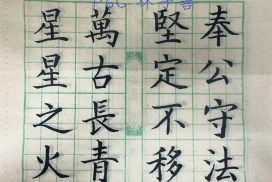 奉公守法
堅定不移
萬古長青
星星之火